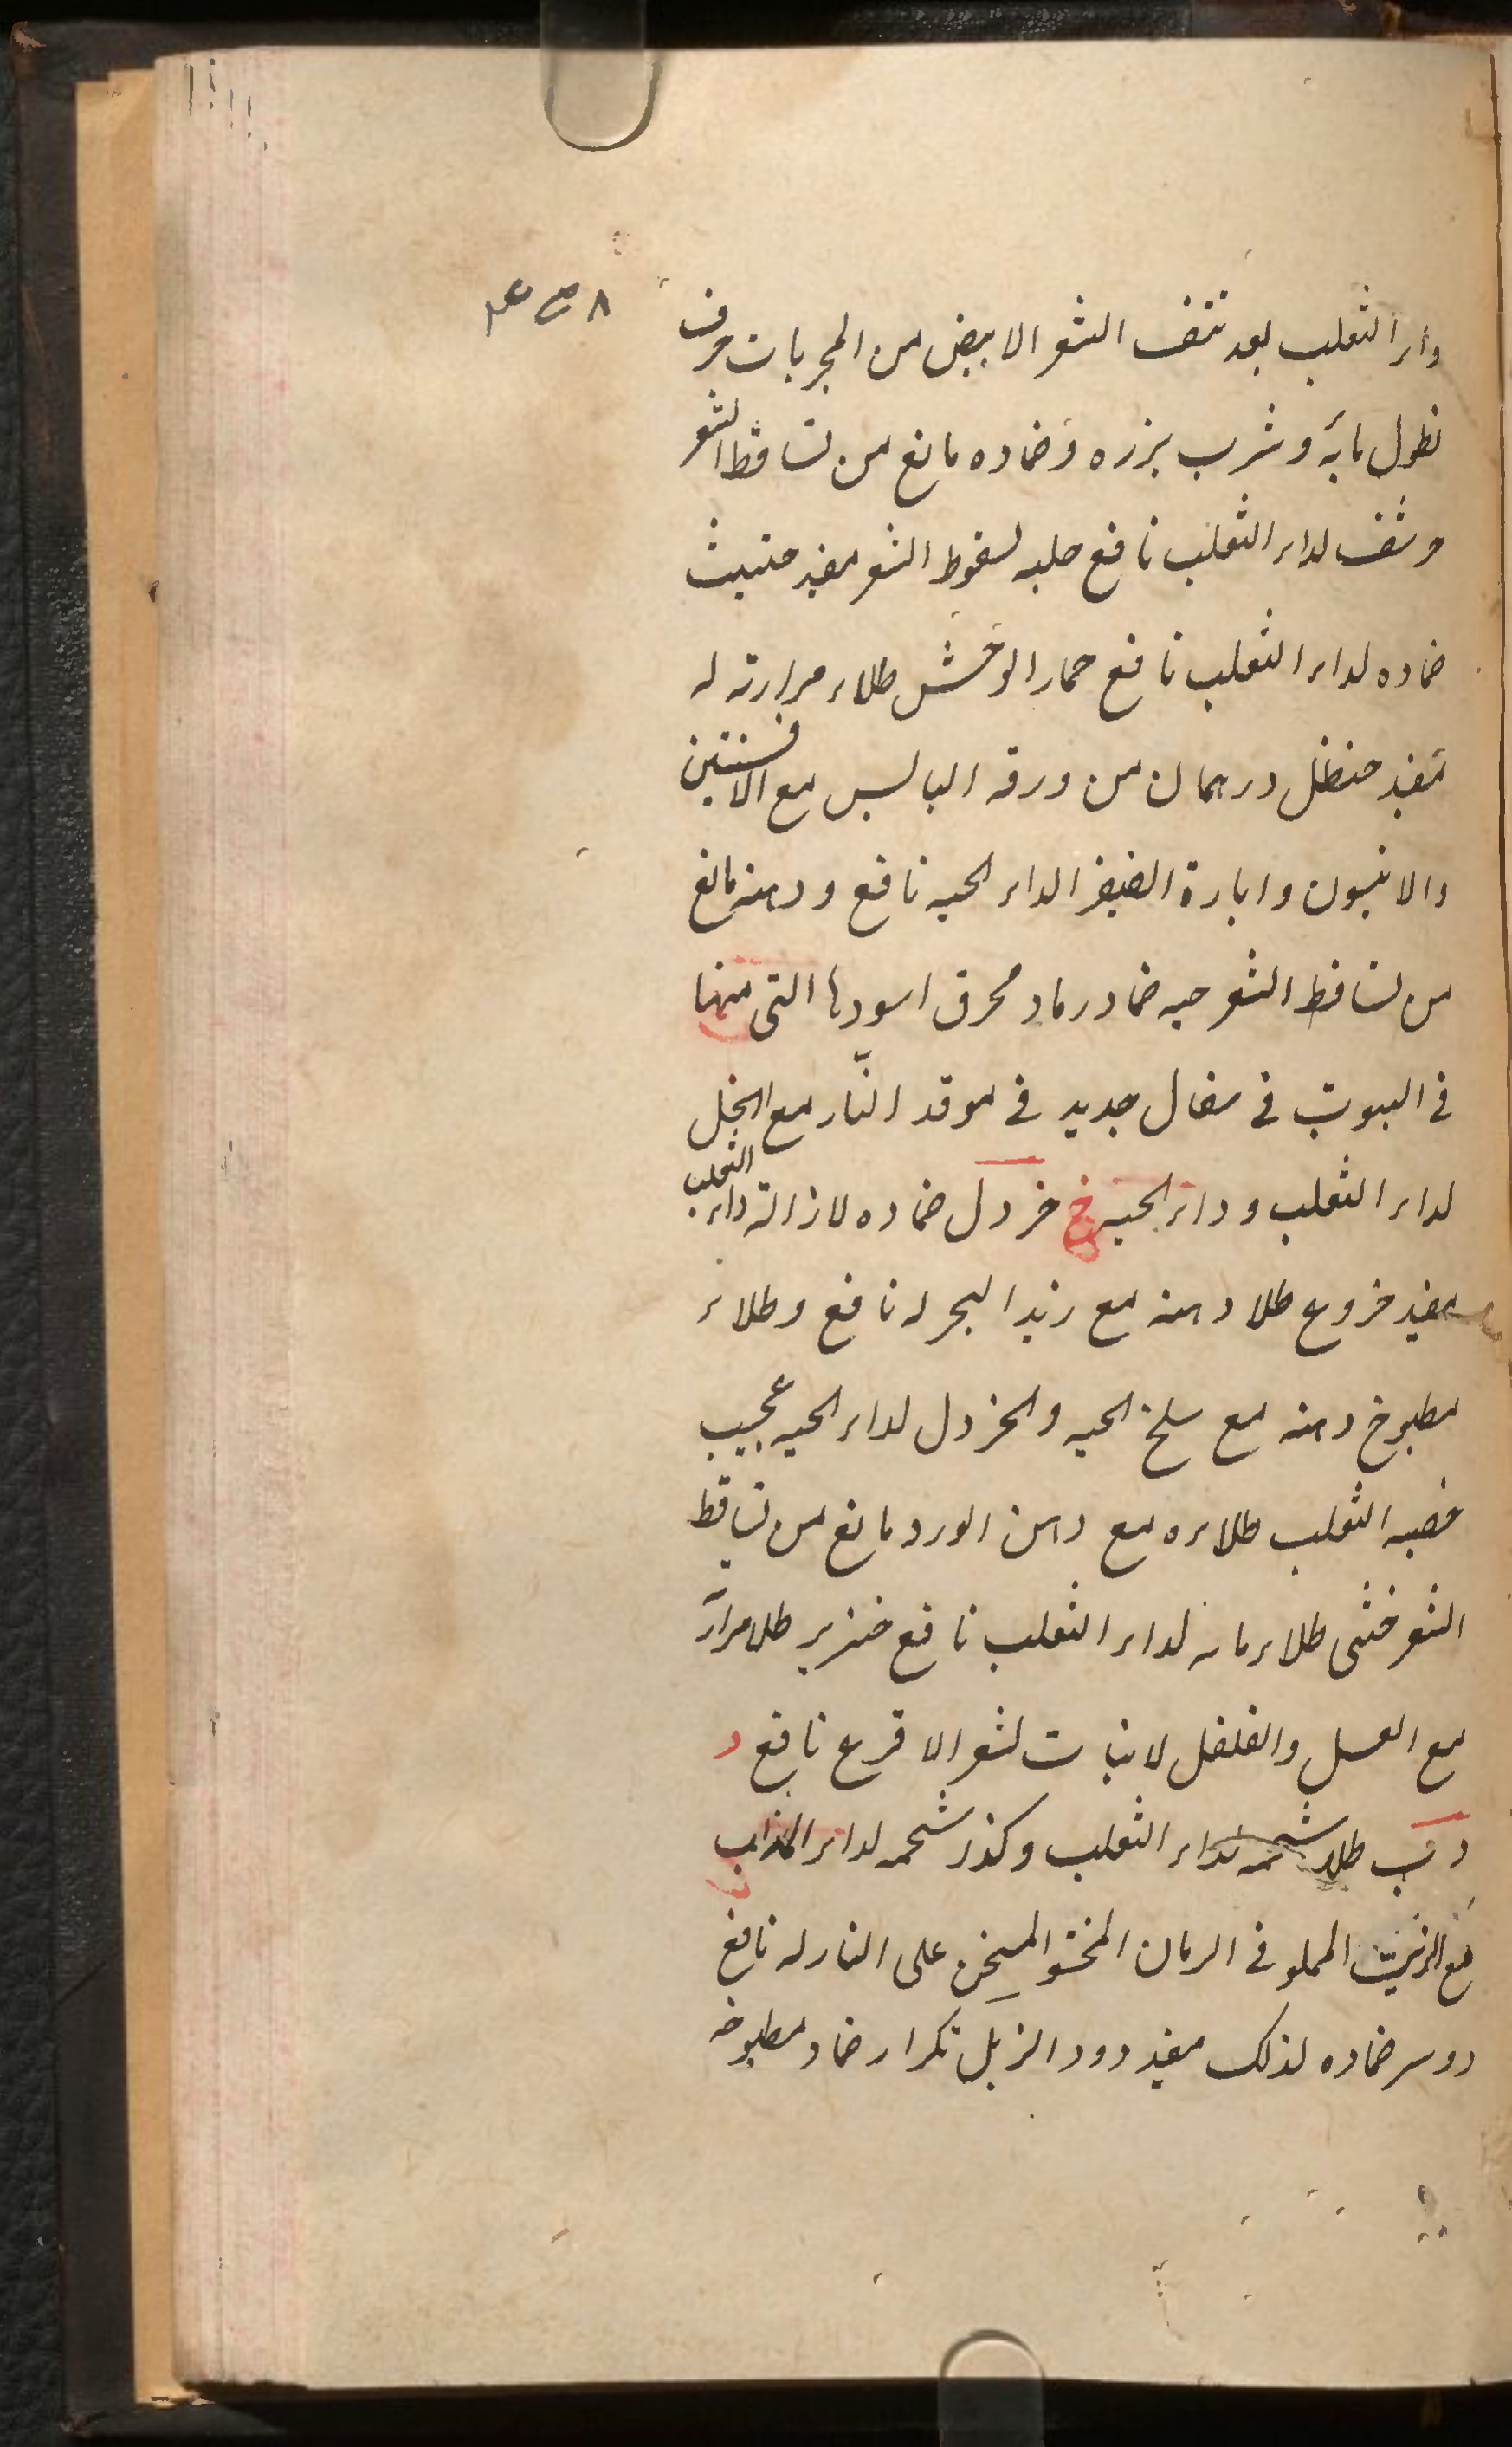 داء الثعلب بعد نتف الشعر الابيض من المجربات حرف
نطول مائه وشرب بزره وضماده مانع من تساقط الشعر
حرشف لداء الثعلب نافع حلبه لسقوط الشعر مفيد حلتيت
ضماده لداء الثعلب نافع حمار الوحش طلاء مرارته له
مفيد حنظل درهمان من ورقه اليابس مع الافسنتين
والانيسون وايارج الفيقرا لداء الحيه نافع ودهنه مانع
من تساقط الشعر حيه ضماد رماد محرق اسودها التى منها
فى البيوت فى سفال جديد فى موقد النّار مع الخل
لداء الثعلب وداء الحيه خ خردل ضماده لازالة داء الثعلب
مفيد خروع طلا دهنه مع زبد البحر له نافع وطلاء
مطبوخ دهنه مع سلخ الحيه والخردل لداء الحيه عجيب
خصيه الثعلب طلاءه مع دهن الورد مانع من تساقط
الشعر خنثى طلاء مائه لداء الثعلب نافع خنزير طلا مرارته
مع العسل والفلفل لانبات لشعر الاقرع نافع د
دب طلا شحمه لداء الثعلب وكذر شحمه لداء المذاب
مع الزيت المملو فى الرمان المسخن على النار له نافع
دوسر ضماده لذلك مفيد دود الزبل تكرار ضماد مطبوخه